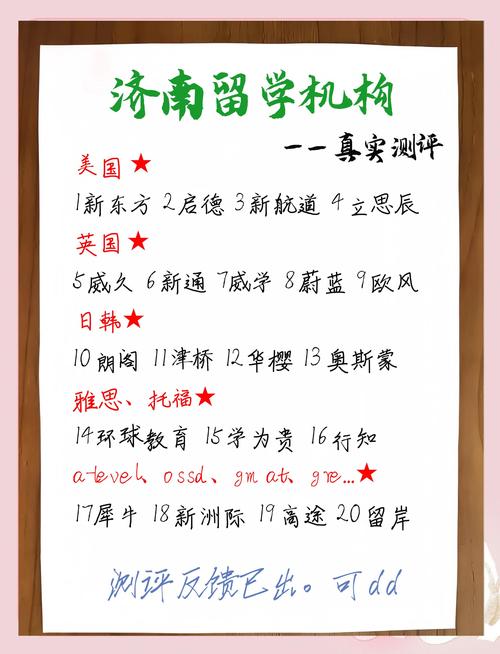 济南留学机构
——真实测评
美国★
1新东方 2启德 3新航道 4立思辰
英国★
5威久 6新通 7威学 8蔚蓝 9欧风
日韩★
10朗阁 11津桥 12华樱 13奥斯蒙
雅思、托福★
14环球教育 15学为贵 16行知
a-level、ossd、gmat、gre...★
17犀牛 18新洲际 19高途 20留岸
测评反馈已出。可dd